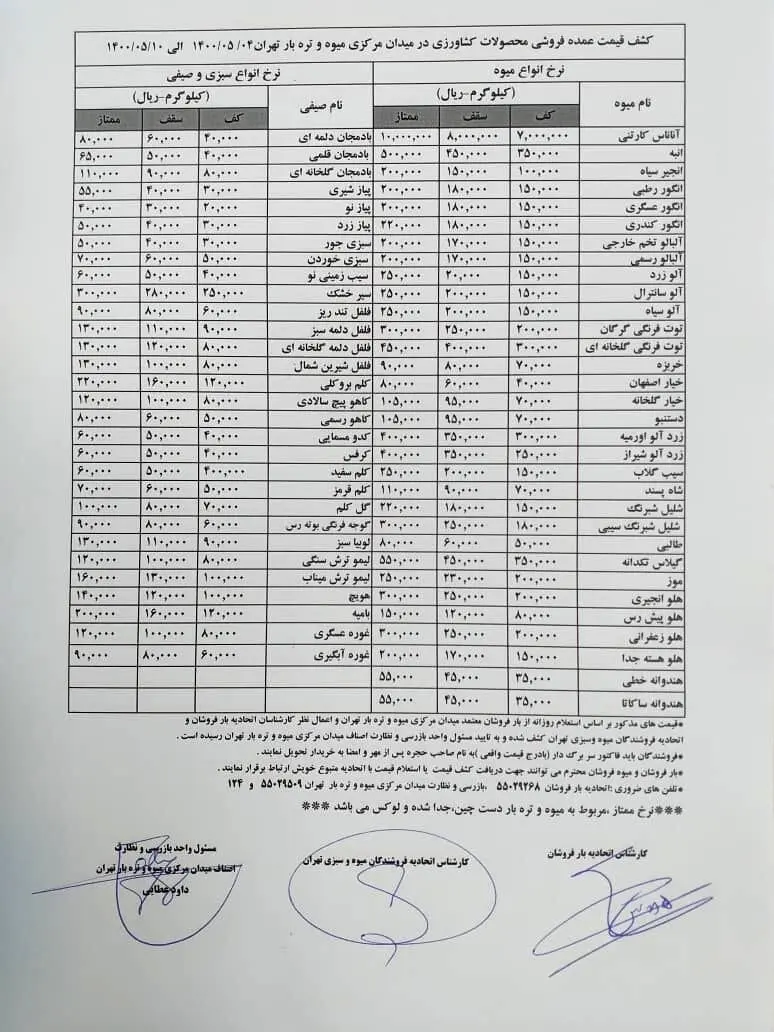 کشف قیمت عمده فروشی محصولات کشاورزی در میدان مرکزی میوه و تره بار تهران ۱۴۰۰/۰۵/۰۴ الی ۱۴۰۰/۰۵/۱۰
نرخ انواع میوه نرخ انواع سبزی و صیفی
نام میوه (کیلوگرم-ریال) نام صیفی (کیلوگرم-ریال)
کف سقف ممتاز کف سقف ممتاز
آناناس کارتنی ۷,۰۰۰,۰۰۰ ۸,۰۰۰,۰۰۰ ۱۰,۰۰۰,۰۰۰ بادمجان دلمه ای ۴۰,۰۰۰ ۶۰,۰۰۰ ۸۰,۰۰۰
انبه ۳۵۰,۰۰۰ ۴۵۰,۰۰۰ ۵۰۰,۰۰۰ بادمجان قلمی ۴۰,۰۰۰ ۵۰,۰۰۰ ۶۵,۰۰۰
انجیر سیاه ۱۰۰,۰۰۰ ۱۵۰,۰۰۰ ۲۰۰,۰۰۰ بادمجان گلخانه ای ۸۰,۰۰۰ ۹۰,۰۰۰ ۱۱۰,۰۰۰
انگور رطبی ۱۵۰,۰۰۰ ۱۸۰,۰۰۰ ۲۰۰,۰۰۰ پیاز شیری ۳۰,۰۰۰ ۴۰,۰۰۰ ۵۵,۰۰۰
انگور عسگری ۱۵۰,۰۰۰ ۱۸۰,۰۰۰ ۲۰۰,۰۰۰ پیاز نو ۲۰,۰۰۰ ۳۰,۰۰۰ ۴۰,۰۰۰
انگور کندری ۱۵۰,۰۰۰ ۱۸۰,۰۰۰ ۲۲۰,۰۰۰ پیاز زرد ۳۰,۰۰۰ ۴۰,۰۰۰ ۵۰,۰۰۰
آلبالو تخم خارجی ۱۵۰,۰۰۰ ۱۷۰,۰۰۰ ۲۰۰,۰۰۰ سبزی جور ۳۰,۰۰۰ ۴۰,۰۰۰ ۵۰,۰۰۰
آلبالو رسمی ۱۵۰,۰۰۰ ۱۷۰,۰۰۰ ۲۰۰,۰۰۰ سبزی خوردن ۵۰,۰۰۰ ۶۰,۰۰۰ ۷۰,۰۰۰
آلو زرد ۱۵۰,۰۰۰ ۲۰,۰۰۰ ۲۵۰,۰۰۰ سیب زمینی نو ۴۰,۰۰۰ ۵۰,۰۰۰ ۶۰,۰۰۰
آلو سانترال ۱۵۰,۰۰۰ ۲۰۰,۰۰۰ ۲۵۰,۰۰۰ سیر خشک ۲۵۰,۰۰۰ ۲۸۰,۰۰۰ ۳۰۰,۰۰۰
آلو سیاه ۱۵۰,۰۰۰ ۲۰۰,۰۰۰ ۲۵۰,۰۰۰ فلفل تند ریز ۶۰,۰۰۰ ۸۰,۰۰۰ ۹۰,۰۰۰
توت فرنگی گرگان ۲۰۰,۰۰۰ ۲۵۰,۰۰۰ ۳۰۰,۰۰۰ فلفل دلمه سبز ۹۰,۰۰۰ ۱۱۰,۰۰۰ ۱۳۰,۰۰۰
توت فرنگی گلخانه ای ۳۰۰,۰۰۰ ۴۰۰,۰۰۰ ۴۵۰,۰۰۰ فلفل دلمه گلخانه ای ۸۰,۰۰۰ ۱۲۰,۰۰۰ ۱۳۰,۰۰۰
خربزه ۷۰,۰۰۰ ۸۰,۰۰۰ ۹۰,۰۰۰ فلفل شیرین شمال ۸۰,۰۰۰ ۱۰۰,۰۰۰ ۱۳۰,۰۰۰
خیار اصفهان ۴۰,۰۰۰ ۶۰,۰۰۰ ۸۰,۰۰۰ کلم بروکلی ۱۲۰,۰۰۰ ۱۶۰,۰۰۰ ۲۲۰,۰۰۰
خیار گلخانه ۷۰,۰۰۰ ۹۵,۰۰۰ ۱۰۵,۰۰۰ کاهو پیچ سالادی ۸۰,۰۰۰ ۱۰۰,۰۰۰ ۱۲۰,۰۰۰
دستنبو ۷۰,۰۰۰ ۹۵,۰۰۰ ۱۰۵,۰۰۰ کاهو رسمی ۵۰,۰۰۰ ۶۰,۰۰۰ ۸۰,۰۰۰
زرد آلو اورمیه ۳۰۰,۰۰۰ ۳۵۰,۰۰۰ ۴۰۰,۰۰۰ کدو مسمایی ۴۰,۰۰۰ ۵۰,۰۰۰ ۶۰,۰۰۰
زرد آلو شیراز ۲۵۰,۰۰۰ ۳۵۰,۰۰۰ ۴۰۰,۰۰۰ کرفس ۴۰,۰۰۰ ۵۰,۰۰۰ ۶۰,۰۰۰
سیب گلاب ۱۵۰,۰۰۰ ۲۰۰,۰۰۰ ۲۵۰,۰۰۰ کلم سفید ۴۰۰,۰۰۰ ۵۰,۰۰۰ ۶۰,۰۰۰
شاه پسند ۷۰,۰۰۰ ۹۰,۰۰۰ ۱۱۰,۰۰۰ کلم قرمز ۵۰,۰۰۰ ۶۰,۰۰۰ ۷۰,۰۰۰
شلیل شبرنگ ۱۵۰,۰۰۰ ۱۸۰,۰۰۰ ۲۲۰,۰۰۰ گل کلم ۷۰,۰۰۰ ۸۰,۰۰۰ ۱۰۰,۰۰۰
شلیل شبرنگ سیبی ۱۸۰,۰۰۰ ۲۵۰,۰۰۰ ۳۰۰,۰۰۰ گوجه فرنگی بوته رس ۶۰,۰۰۰ ۸۰,۰۰۰ ۹۰,۰۰۰
طالبی ۵۰,۰۰۰ ۶۰,۰۰۰ ۸۰,۰۰۰ لوبیا سبز ۹۰,۰۰۰ ۱۱۰,۰۰۰ ۱۳۰,۰۰۰
گیلاس تکدانه ۳۵۰,۰۰۰ ۴۵۰,۰۰۰ ۵۵۰,۰۰۰ لیمو ترش سنگی ۸۰,۰۰۰ ۱۰۰,۰۰۰ ۱۲۰,۰۰۰
موز ۲۰۰,۰۰۰ ۲۳۰,۰۰۰ ۲۵۰,۰۰۰ لیمو ترش میناب ۱۰۰,۰۰۰ ۱۳۰,۰۰۰ ۱۶۰,۰۰۰
هلو انجیری ۲۰۰,۰۰۰ ۲۵۰,۰۰۰ ۳۰۰,۰۰۰ هویج ۱۰۰,۰۰۰ ۱۲۰,۰۰۰ ۱۴۰,۰۰۰
هلو پیش رس ۸۰,۰۰۰ ۱۲۰,۰۰۰ ۱۵۰,۰۰۰ بامیه ۱۲۰,۰۰۰ ۱۶۰,۰۰۰ ۲۰۰,۰۰۰
هلو زعفرانی ۲۰۰,۰۰۰ ۲۵۰,۰۰۰ ۳۰۰,۰۰۰ غوره عسگری ۸۰,۰۰۰ ۱۰۰,۰۰۰ ۱۲۰,۰۰۰
هلو هسته جدا ۱۵۰,۰۰۰ ۱۷۰,۰۰۰ ۲۰۰,۰۰۰ غوره آبگیری ۶۰,۰۰۰ ۸۰,۰۰۰ ۹۰,۰۰۰
هندوانه خطی ۳۵,۰۰۰ ۴۵,۰۰۰ ۵۵,۰۰۰
هندوانه ساکاتا ۳۵,۰۰۰ ۴۵,۰۰۰ ۵۵,۰۰۰
*قیمت های مذکور بر اساس استعلام روزانه از بار فروشان معتمد میدان مرکزی میوه و تره بار تهران و اعمال نظر کارشناسان اتحادیه بار فروشان و
اتحادیه فروشندگان میوه وسبزی تهران کشف شده و به تایید مسئول واحد بازرسی و نظارت اصناف میدان مرکزی میوه و تره بار تهران رسیده است .
*فروشندگان باید فاکتور سر برگ دار (بادرج قیمت واقعی )به نام صاحب حجره پس از مهر و امضا به خریدار تحویل نمایند .
*بار فروشان و میوه فروشان محترم می توانند جهت دریافت کشف قیمت یا استعلام قیمت با اتحادیه متبوع خویش ارتباط برقرار نمایند .
*تلفن های ضروری :اتحادیه بار فروشان ۵۵۰۲۹۲۶۸ ،بازرسی و نظارت میدان مرکزی میوه و تره بار تهران ۵۵۰۲۹۵۰۹ و ۱۲۴
***نرخ ممتاز ،مربوط به میوه و تره بار دست چین،جدا شده و لوکس می باشد ***
کارشناس اتحادیه بار فروشان
کارشناس اتحادیه فروشندگان میوه و سبزی تهران
مسئول واحد بازرسی و نظارت
اصناف میدان مرکزی میوه و تره بار تهران
داود عطایی